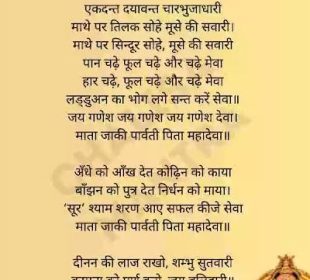 एकदन्त दयावन्त चारभुजाधारी
माथे पर तिलक सोहे मूसे की सवारी।
माथे पर सिन्दूर सोहे, मूसे की सवारी
पान चढ़े फूल चढ़े और चढ़े मेवा
हार चढ़े, फूल चढ़े और चढ़े मेवा
लड्डुअन का भोग लगे सन्त करें सेवा॥
जय गणेश जय गणेश जय गणेश देवा।
माता जाकी पार्वती पिता महादेवा॥
अँधे को आँख देत कोढ़िन को काया
बाँझन को पुत्र देत निर्धन को माया।
'सूर' श्याम शरण आए सफल कीजे सेवा
माता जाकी पार्वती पिता महादेवा॥
दीनन की लाज राखो, शम्भु सुतवारी